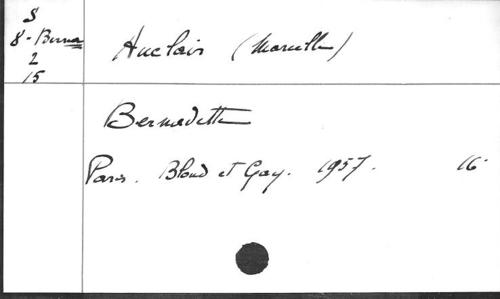 S
8 - Berna
2
15
Auclair (Marcelle)
Bernadette
Paris. Bloud et Gay. 1957. 16°